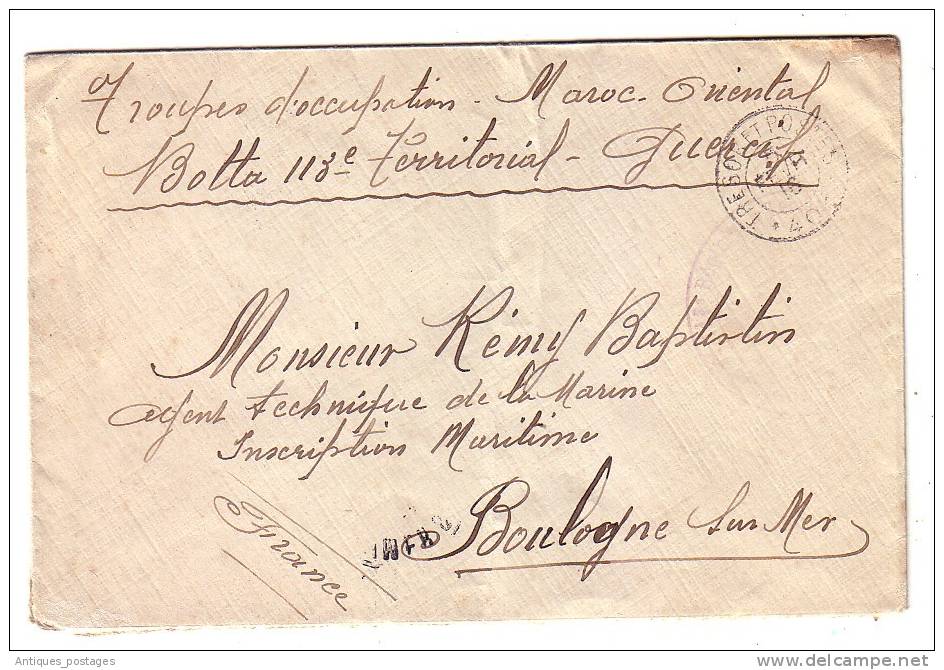 Troupes d'occupation - Maroc-Oriental
Botta 113e Territorial - Guercif
TRESOR ET POSTES
* 407 *
Monsieur Rémy Baptistin
agent technique de la Marine
Inscription Maritime
Boulogne sur Mer
France
Antiques_postages
www.delcampe.net